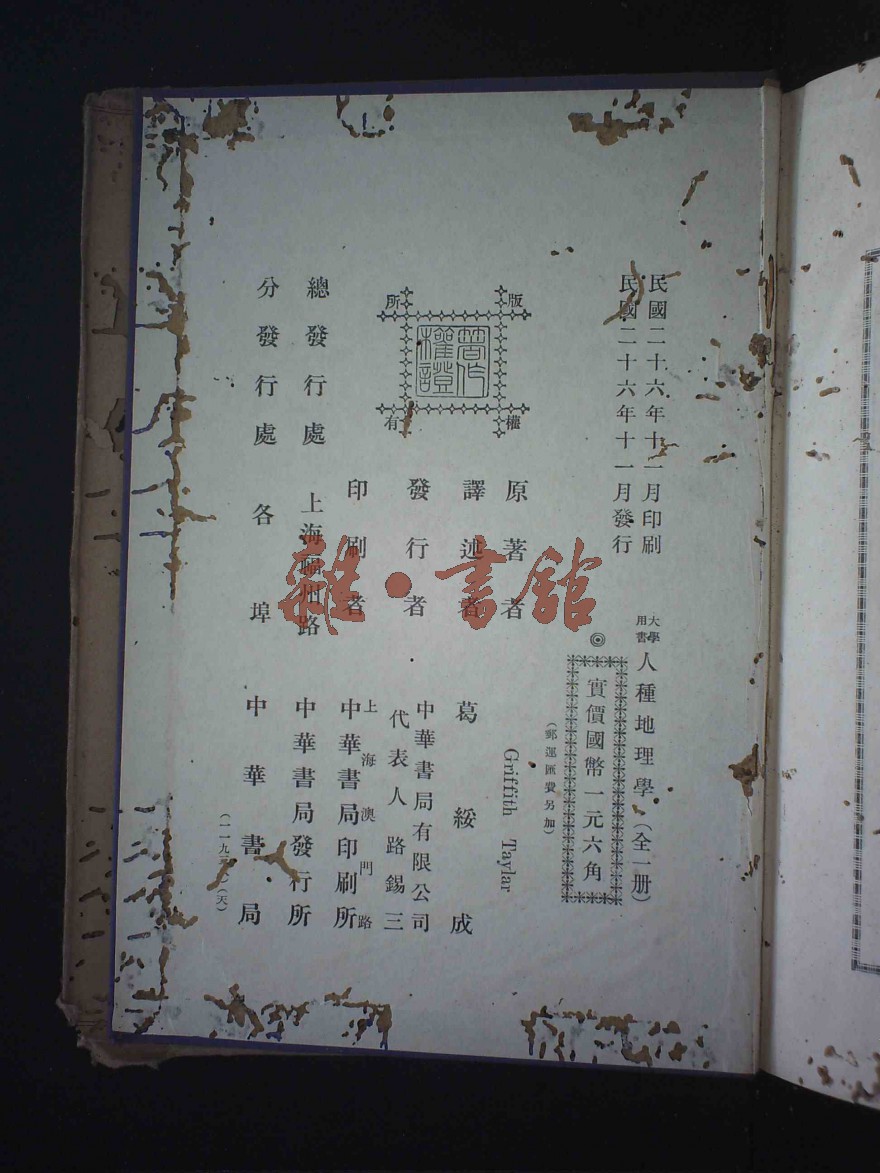 民國二十六年十一月印刷
民國二十六年十一月發行
大學用書 人種地理學(全一册)
◎實價國幣一元六角
(郵運匯費另加)
版權所有
著作權證
原著者 Griffith Taylar
譯述者 葛綏成
發行者 中華書局有限公司
代表人 路錫三
印刷者 上海澳門路
中華書局印刷所
總發行處 上海福州路 中華書局發行所
分發行處 各埠 中華書局
雜·書館